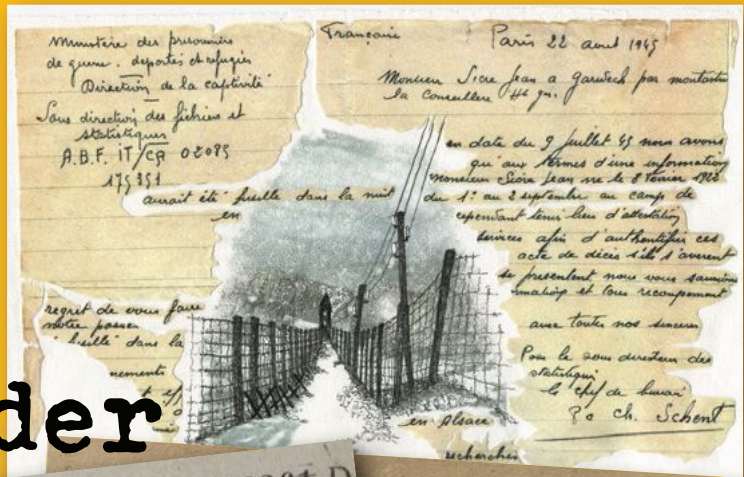 Ministère des prisonniers
de guerre. déportés et refugiés
Direction de la captivité
Sous direction des fichiers et
statistiques
A.B.F. IT/CA 02085
175 251
Française
Paris 22 aout 1945
Monsieur Sicre Jean a par montastruc
la Conseillere Hte gne.
en date du 9 juillet 45 nous avons
qu'aux termes d'une information
monsieur Sicre Jean né le 8 fevrier 1922
aurait été fusillé dans la nuit du 1er au 2 septembre au camp de
en cependant tenir lieu d'attestation
services afin d'authentifier ces
acte de décès s'ils s'averent
se presentent nous vous saurions
et tous recoupement
regret de vous faire
notre
fusillé dans la
nements
avec toutes nos sinceres
Pour le sous directeur des
statistiques
le chef de bureau
Ch. Schent
en Alsace
recherches
der